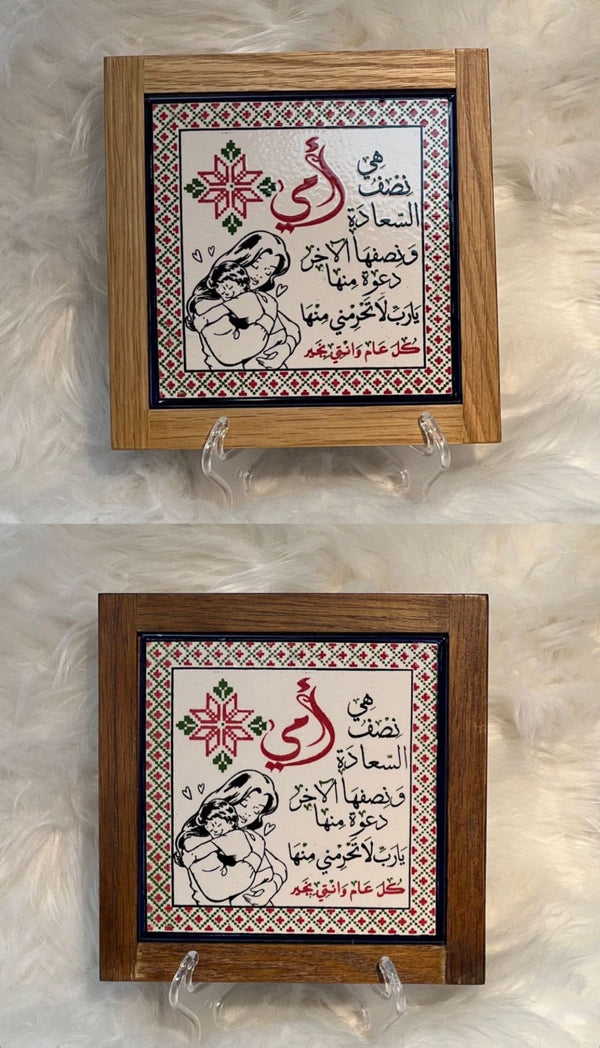 أمي
هي
نصْفُ
السّعادَةِ
وَنِصفهَا الآخر
دعوَة مِنهَا
يَاربّ لَا تَحْرِمْني مِنْهَا
كُل عَام وَانتِي بِخَير
أمي
هي
نصْفُ
السّعادَةِ
وَنِصفهَا الآخر
دعوَة مِنهَا
يَاربّ لَا تَحْرِمْني مِنْهَا
كُل عَام وَانتِي بِخَير